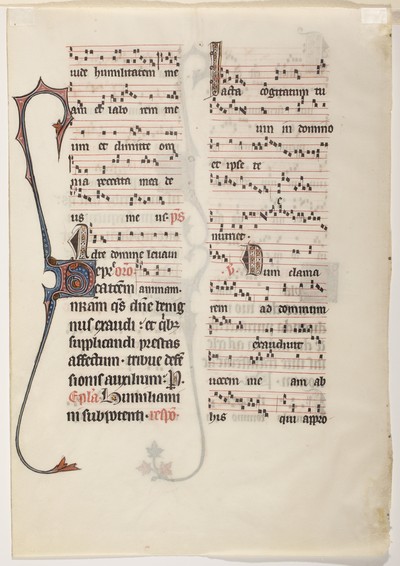 uide humilitatem me
am et labo rem me
um et dimitte om
nia peccata mea de
us me us. ps
Ad te domine leuaui
Depᵉ oro.
catōem nostram
nrām qs dne benig
nus exaudi: et qibz
supplicandi prestas
affectum. tribue defē
sionis auxilium. P.
Epla. Humiliami
ni sub potenti. respō.
Iacta cogitatum tu
um in domino
et ipse te
nutriet.
V. Dum clama
rem ad dominum
exaudiuit
uocem me am ab
his qui appro